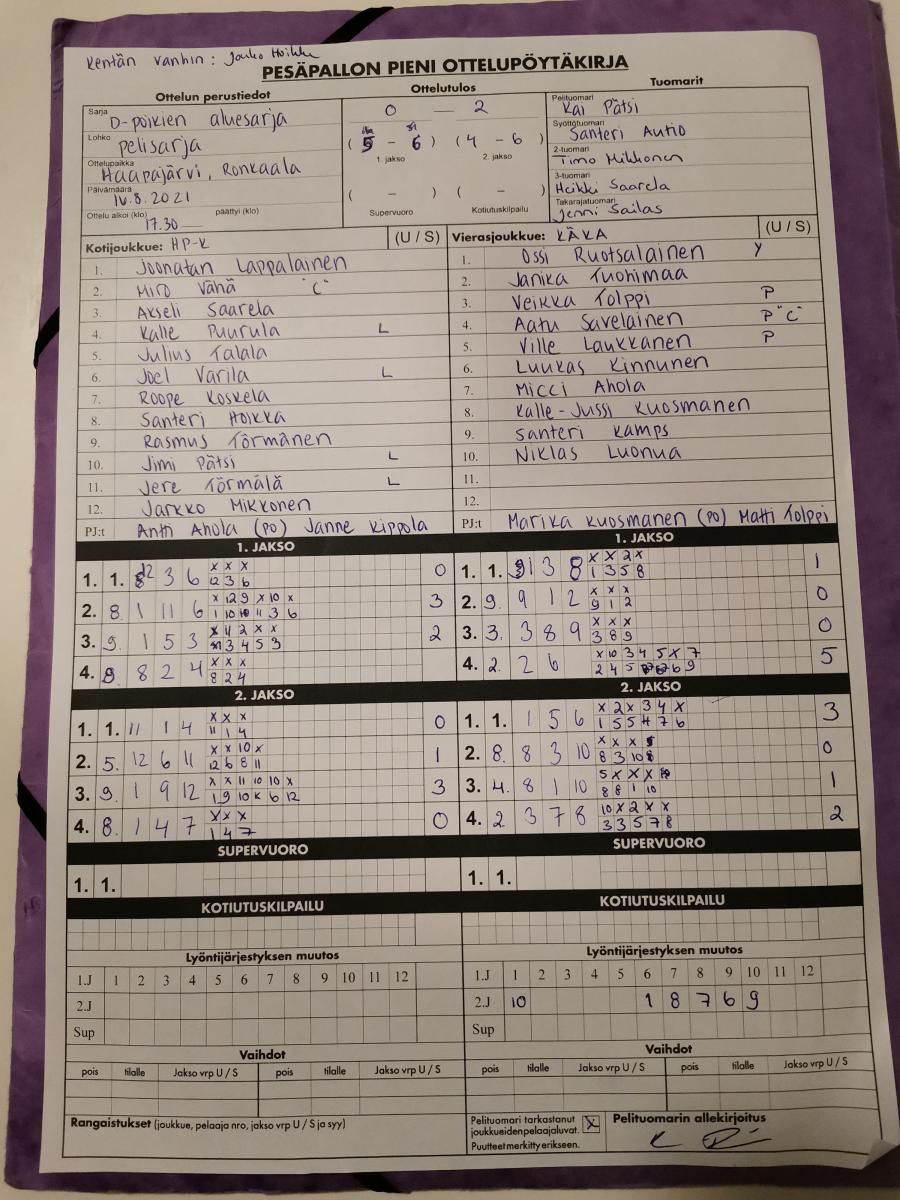 Kentän vanhin: Jouko Hoikka
PESÄPALLON PIENI OTTELUPÖYTÄKIRJA
Ottelun perustiedot
Sarja D-poikien aluesarja
Lohko pelisarja
Ottelupaikka Haapajärvi, Ronkaala
Päivämäärä 10.8.2021
Ottelu alkoi (klo) 17.30 päättyi (klo)
Ottelutulos
0 — 2
(5 – 6) (4 – 6)
1. jakso 2. jakso
( – ) ( – )
Supervuoro Kotiutuskilpailu
Tuomarit
Pelituomari Kai Pätsi
Syöttötuomari Santeri Autio
2-tuomari Timo Mikkonen
3-tuomari Heikki Saarela
Takarajatuomari Jenni Sailas
Kotijoukkue: HP-K (U / S)
1. Joonatan Lappalainen
2. Miro Vähä "C"
3. Akseli Saarela
4. Kalle Puurula L
5. Julius Talala
6. Joel Varila L
7. Roope Koskela
8. Santeri Hoikka
9. Rasmus Törmänen
10. Jimi Pätsi L
11. Jere Törmälä L
12. Jarkko Mikkonen
PJ:t Antti Ahola (PO) Janne Kippola
Vierasjoukkue: KÄKÄ (U / S)
1. Ossi Ruotsalainen Y
2. Janika Tuohimaa
3. Veikka Tolppi P
4. Aatu Savelainen P "C"
5. Ville Laukkanen P
6. Luukas Kinnunen
7. Micci Ahola
8. Kalle-Jussi Kuosmanen
9. Santeri Kamps
10. Niklas Luonua
11.
12.
PJ:t Marika Kuosmanen (PO) Matti Tolppi
1. JAKSO
1. 1. 2 3 6 x x x 0
12 3 6
2. 8 1 11 6 x 12 9 x 10 x 3
1 10 10 11 3 6
3. 9. 1 5 3 x 11 2 x x 2
3 4 5 3
4. 8. 8 2 4 x x x 0
8 2 4
1. JAKSO
1. 1. 1 3 8 x x 2 x 1
1 3 5 8
2. 9. 9 1 2 x x x 0
9 1 2
3. 3. 3 8 9 x x x 0
3 8 9
4. 2. 2 6 x 10 3 4 5 x 7 5
2 4 5 6 9
2. JAKSO
1. 1. 11 1 4 x x x 0
11 1 4
2. 5. 12 6 11 x x 10 x 1
12 6 8 11
3. 9. 1 9 12 x x 11 10 10 x 3
1 9 10 K 6 12
4. 8. 1 4 7 x x x 0
1 4 7
2. JAKSO
1. 1. 1 5 6 x 2 x 3 4 x 3
1 5 5 4 7 6
2. 8. 8 3 10 x x x 0
8 3 10
3. 4. 8 1 10 5 x x x 1
8 8 1 10
4. 2 3 7 8 10 x 2 x x 2
3 3 5 7 8
SUPERVUORO
1. 1.
SUPERVUORO
1. 1.
KOTIUTUSKILPAILU
KOTIUTUSKILPAILU
Lyöntijärjestyksen muutos
1.J 1 2 3 4 5 6 7 8 9 10 11 12
2.J
Sup
Lyöntijärjestyksen muutos
1.J 1 2 3 4 5 6 7 8 9 10 11 12
2.J 10 1 8 7 6 9
Sup
Vaihdot
pois tilalle Jakso vrp U / S pois tilalle Jakso vrp U / S
Vaihdot
pois tilalle Jakso vrp U / S pois tilalle Jakso vrp U / S
Rangaistukset (joukkue, pelaaja nro, jakso vrp U / S ja syy)
Pelituomari tarkastanut
joukkueidenpelaajaluvat. X
Puutteet merkitty erikseen.
Pelituomarin allekirjoitus